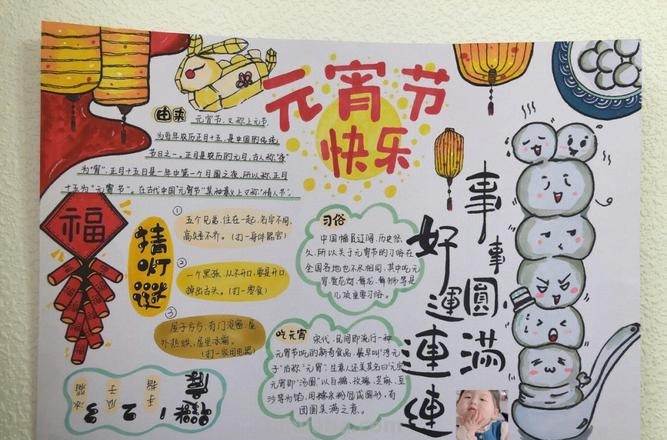 元宵节
快乐
由来
元宵节,又称上元节,
为每年农历正月十五,是中国的传统
节日之一。正月是农历的元月,古人称"夜"
为"宵",正月十五日是一年中第一个月圆之夜,所以称正月
十五为"元宵节"。在古代中国"元宵节"其神意义上又称"情人节"。
福
猜
灯
谜
①
五个兄弟,住在一起,名字不同,
高矮不齐。(打一身体器官)
②
一个黑孩,从不开口,要是开口,
掉出舌头。(打一零食)
③
屋子方方,有门没窗,屋
外热烘,屋里冰霜。
(打一家用电器)
谜底
1 手指
2 瓜子
3 冰箱
习俗
中国幅员辽阔,历史悠
久,所以关于元宵节的习俗在
全国各地也不尽相同,其中吃元
宵、赏花灯、舞龙、舞狮等是
几项重要习俗。
吃元宵
宋代,民间即流行一种
元宵节吃的新奇食品。最早叫"浮元
子"后称"元宵",生意人还美其名曰"元宝"
元宵即"汤圆"以白糖、玫瑰、芝麻、豆
沙等为馅,用糯米粉包成圆形,有
团圆美满之意。
好
運
連
連
事
事
圓
滿